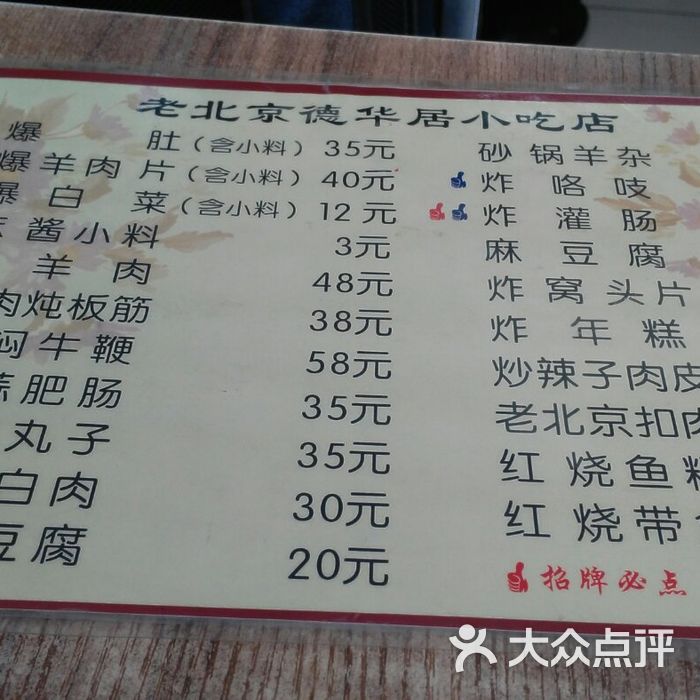 老北京德华居小吃店
爆 肚（含小料） 35元
爆羊肉片（含小料） 40元
爆白菜（含小料） 12元
酱小料 3元
羊肉 48元
肉炖板筋 38元
焖牛鞭 58元
肥肠 35元
丸子 35元
白肉 30元
豆腐 20元
砂锅羊杂
炸咯吱
炸灌肠
麻豆腐
炸窝头片
炸年糕
炒辣子肉皮
老北京扣肉
红烧鱼
红烧带
招牌必点
大众点评